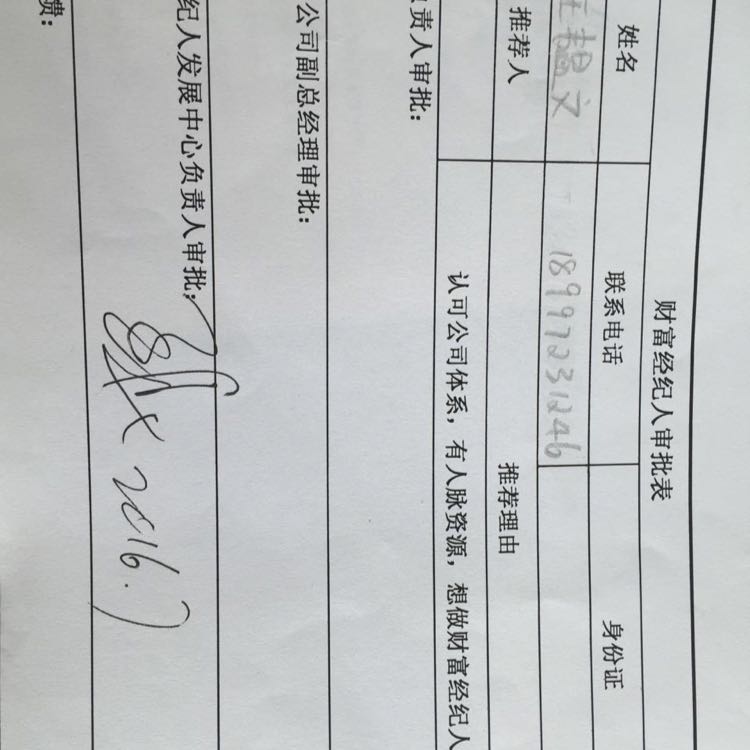 财富经纪人审批表
姓名 联系电话 身份证
王 文 18997231246
推荐人 推荐理由
认可公司体系，有人脉资源，想做财富经纪人
责人审批：
公司副总经理审批：
纪人发展中心负责人审批：
2016.
馈：